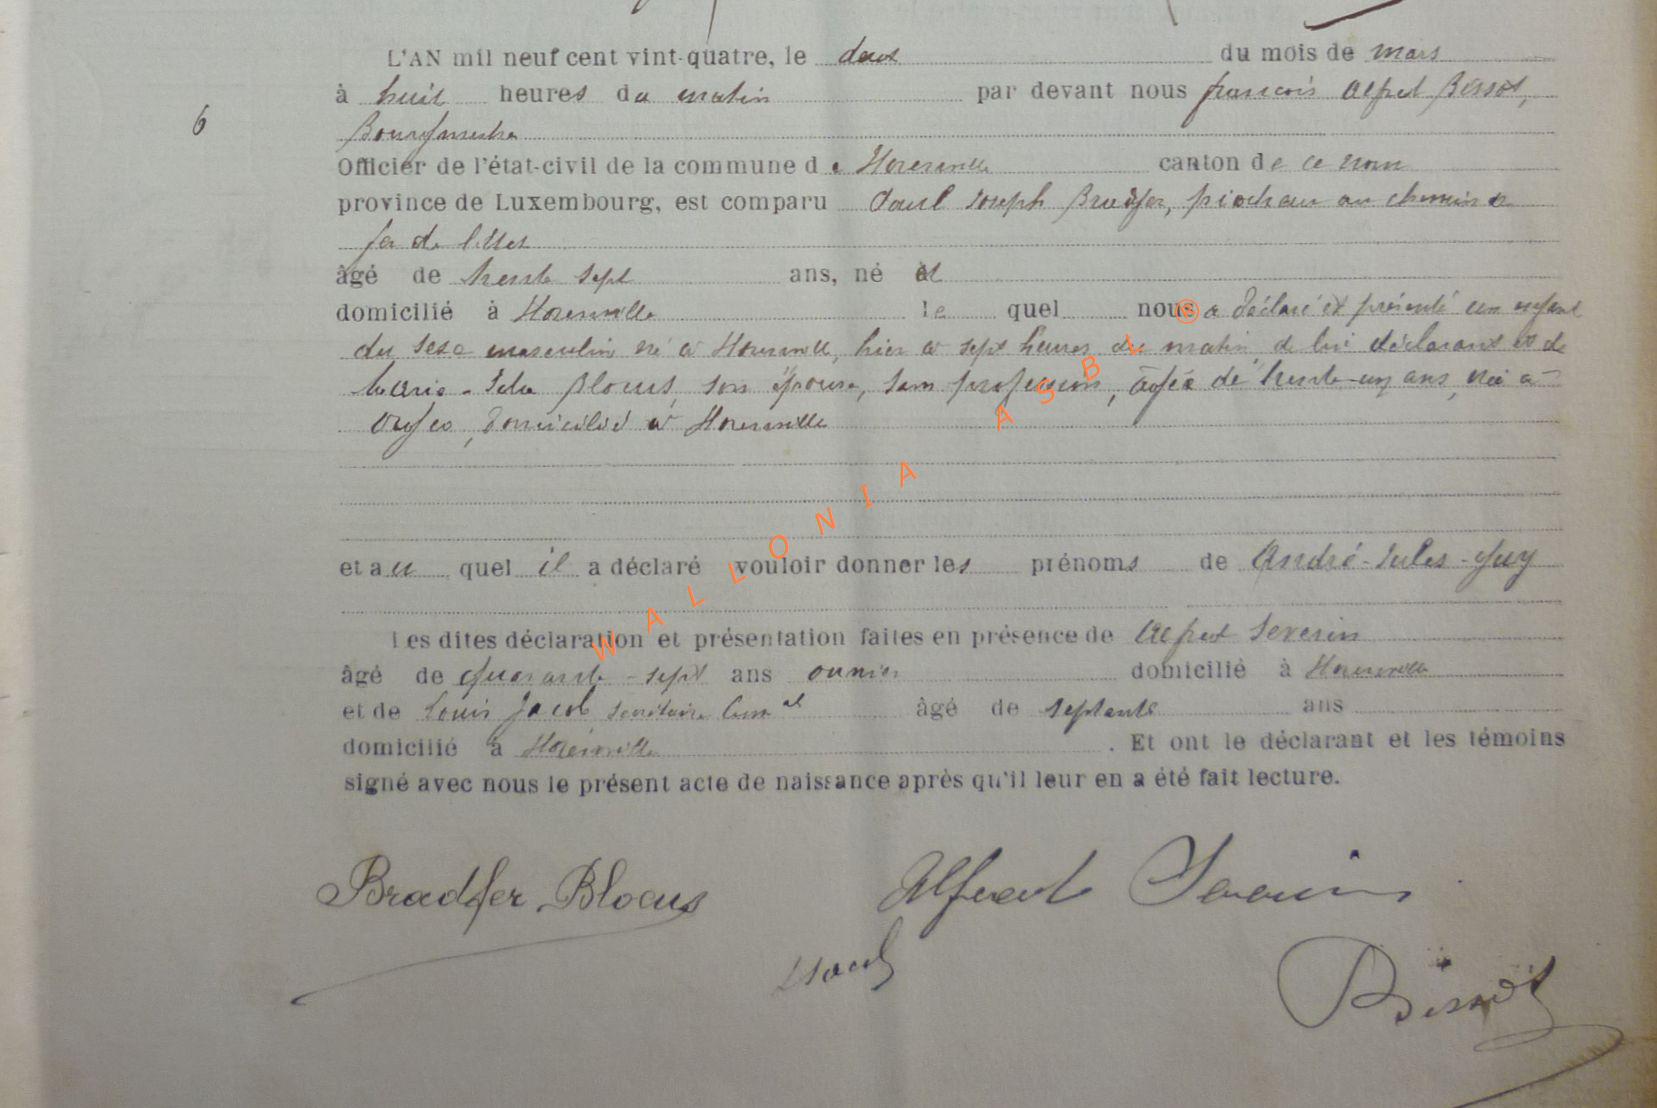 L'AN mil neuf cent vint-quatre, le deux du mois de mars
à huit heures du matin par devant nous françois Alfred Bissot,
6
Bourgmestre
Officier de l'état-civil de la commune de canton de ce nom
province de Luxembourg, est comparu Paul Joseph Bradfer, piocheur au chemin de
fer de l'Etat
âgé de trente sept ans, né et
domicilié à le quel nous a déclaré et présenté un enfant
du sexe masculin né à hier à sept heures du matin, de lui déclarant et de
Marie - Blocus, son épouse, sans profession, âgée de trente-un ans, née à
domiciliée à
et au quel il a déclaré vouloir donner les prénoms de André-Jules-Guy
Les dites déclaration et présentation faites en présence de Alfred Severin
âgé de quarante-sept ans ouvrier domicilié à
et de Louis Jacob secrétaire Comal âgé de septante ans
domicilié à . Et ont le déclarant et les témoins
signé avec nous le présent acte de naissance après qu'il leur en a été fait lecture.
Bradfer-Blocus
Alfred Severin
LJacob
Bissot
© WALLONIA ASBL